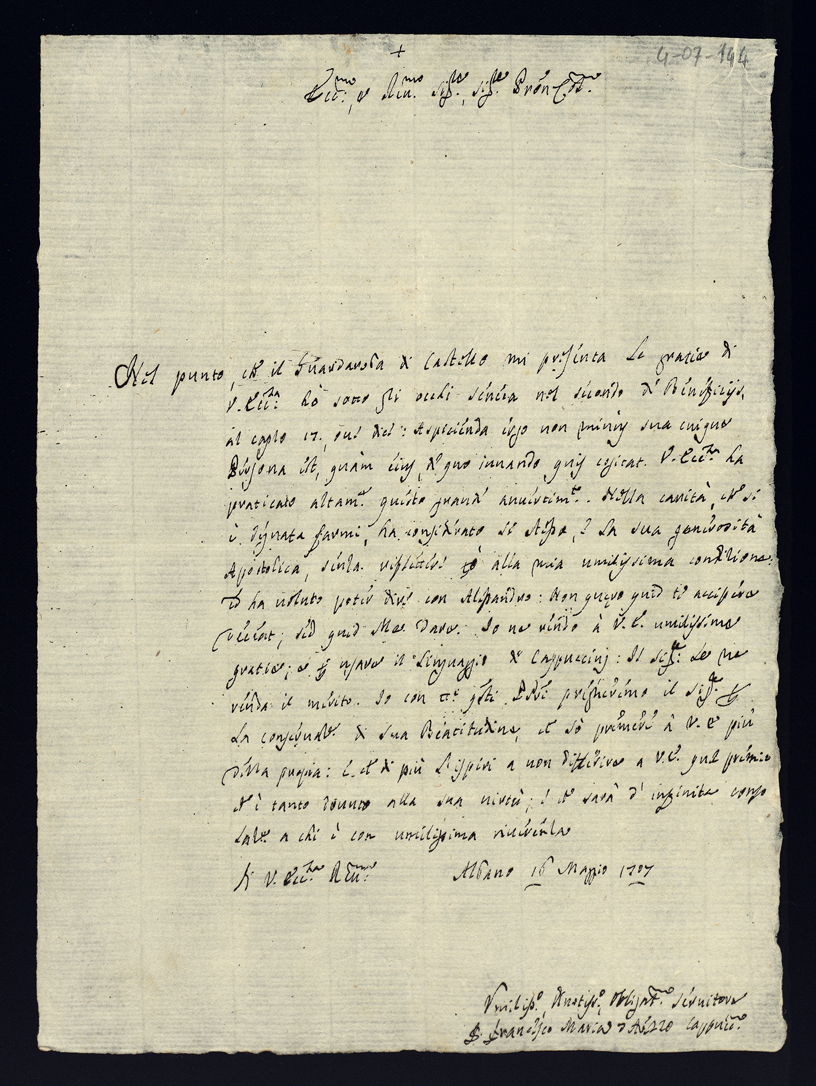 4-07-144
+
Ecc.mo, e Rev.mo Sig.re, Sig.re Pron Col.mo
Nel punto, che il Guardaroba di Castello mi presenta le gratie di
V. Ecc.za hò sotto gli occhi Seneca nel secondo de Beneficijs,
al caplo 17. ove dice: Aspicienda ergo non minus sua cuique
Persona est, quàm eius, de quo iuvando quis cogitat. V. Ecc.za ha
praticato altam.te questo grand' avvertim.to. Nella carità, che si
è degnata farmi, ha considerato Se stessa, e la sua generosità
Apostolica, senza riflettere alla mia umilissima conditione:
ha voluto poter dire con Alessandro: Non quero quid te accipere
deceat; sed quid Me dare. Io ne rendo à V. E. umilissime
gratie; e usare il linguaggio de Cappuccini: Il Sig.re Le ne
renda il merito. Io con q.sti PPri pregheremo il Sig.re
la conservat.e di Sua Beatitudine, che sò premere à V. E. più
della propria: e che di più L'ispiri a non differire a V. E. quel premio
ch'è tanto dovuto alla sua virtù; e che sarà d'infinita conso
lat.e a chi è con umilissima riverenza
Di V. Ecc.za Rev.ma Albano 16 Maggio 1707
Umiliss.o, Devotiss.o, Obligat.mo Servitore
F. Francesco Maria d'Arezzo Cappucc.o